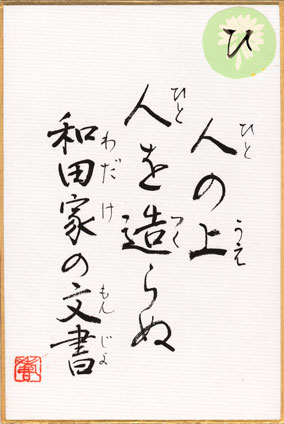 ひ
人の上
ひと
うえ
人を造らぬ
ひと
つく
和田家の文書
わだけ
もんじよ